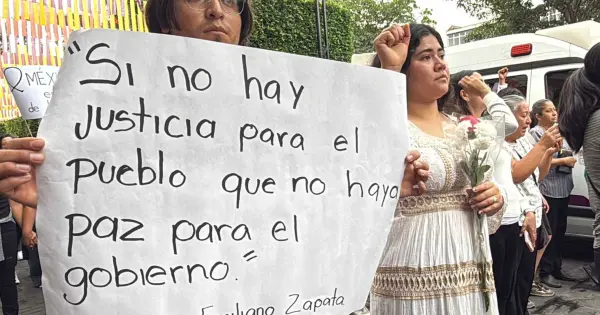 "Si no hay
Justicia para el
Pueblo que no haya
paz para el
gobierno."
Emiliano Zapata